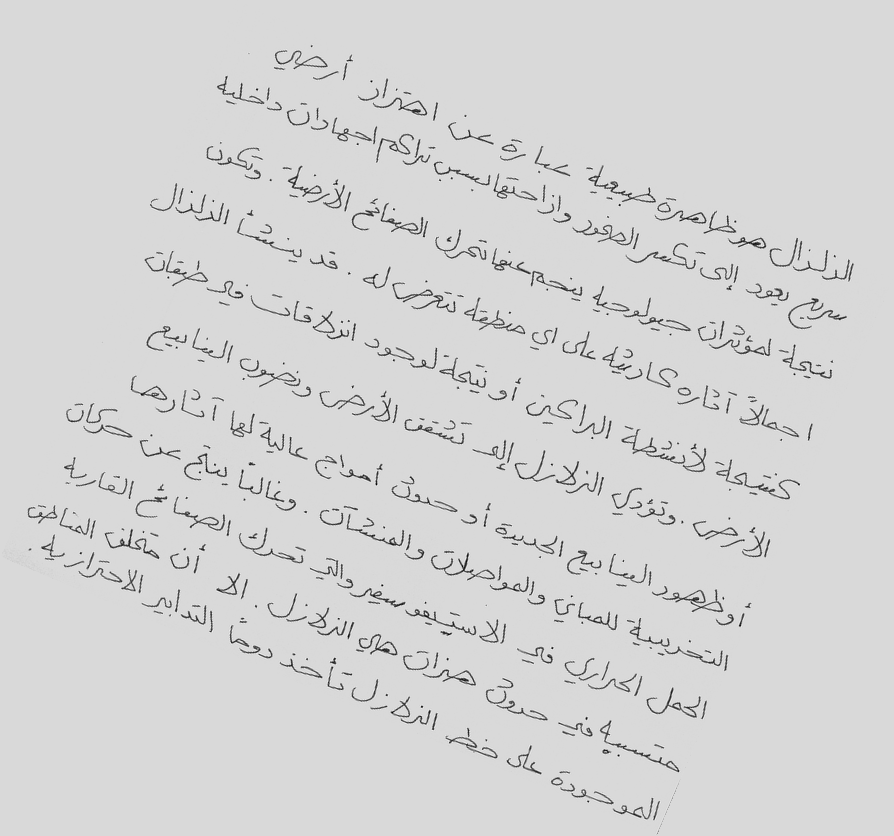 الزلزال هو ظاهرة طبيعية عبارة عن اهتزاز أرضي
سريع يعود إلى تكسر الصخور وازاحتها بسبب تراكم اجهادات داخلية
نتيجة لمؤثرات جيولوجية ينجم عنها تحرك الصفائح الأرضية . وتكون
اجمالاً آثاره كارثية على اي منطقة تتعرض له . قد ينشأ الزلزال
كنتيجة لأنشطة البراكين أو نتيجة لوجود انزلاقات في طبقات
الأرض . وتؤدي الزلازل إلى تشقق الأرض ونضوب الينابيع
أو ظهور الينابيع الجديدة أو حدوث أمواج عالية لها آثارها
التخريبية للمباني والمواصلات والمنشآت . وغالباً ينتج عن حركات
الحمل الحراري في الاستيفوسفير والتي تحرك الصفائح القارية
متسببه في حدوث هزات هي الزلازل . الا أن مختلف المناطق
الموجودة على خط الزلازل تأخذ دوماً التدابير الاحترازيه .